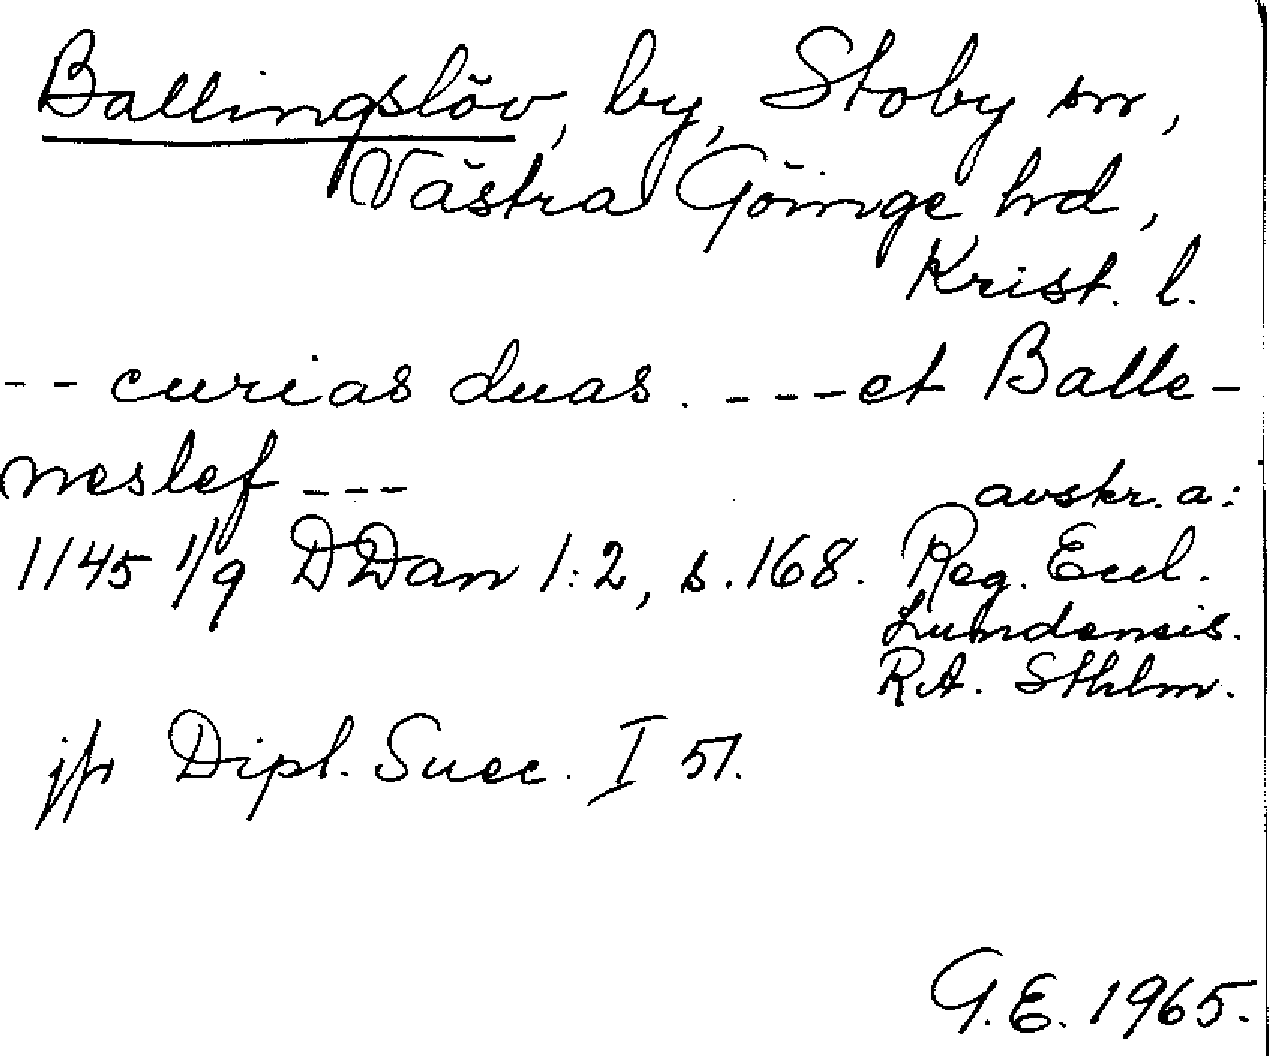 Ballingslöv, by, Stoby sn,
Västra Göinge hd,
Krist. l.
-- curias duas. ---et Balle-
neslef ---
avskr. a:
1145 1/9 DDan 1:2, s. 168. Reg. Eccl.
Lundensis.
RA. Sthlm.
jfr Dipl. Suec. I 51.
G.E. 1965.